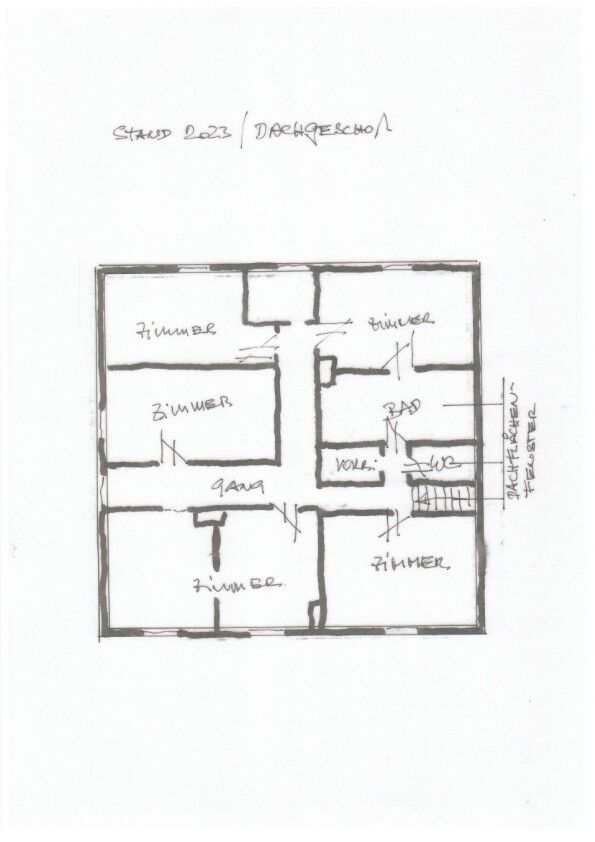 STAND 2023 / DACHGESCHOß
ZIMMER
ZIMMER
ZIMMER
BAD
VORR.
WC
DACHFLÄCHEN-
FENSTER
GANG
ZIMMER
ZIMMER